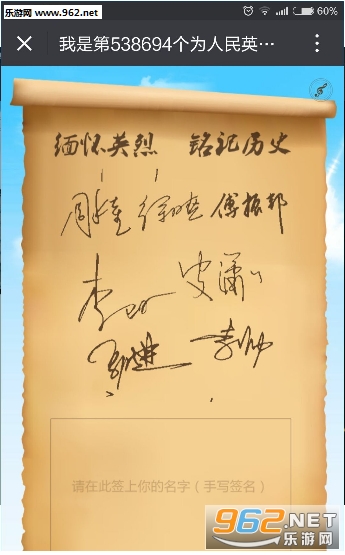 乐游网
www.962.net
60%
我是第538694个为人民英…
缅怀英烈 铭记历史
傅振邦
请在此签上你的名字（手写签名）
962.NET
乐游网